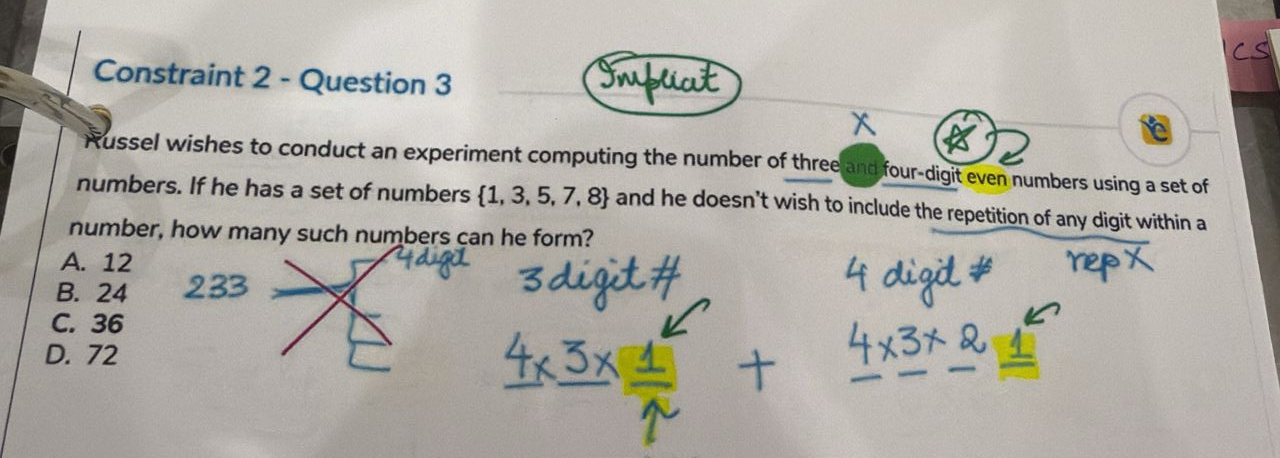 CS
Constraint 2 - Question 3
Implicit
X
Russel wishes to conduct an experiment computing the number of three and four-digit even numbers using a set of
numbers. If he has a set of numbers {1, 3, 5, 7, 8} and he doesn't wish to include the repetition of any digit within a
number, how many such numbers can he form?
A. 12
B. 24
C. 36
D. 72
233
4 digit
3 digit #
4 digit #
rep X
4 x 3 x 1 + 4 x 3 x 2 1